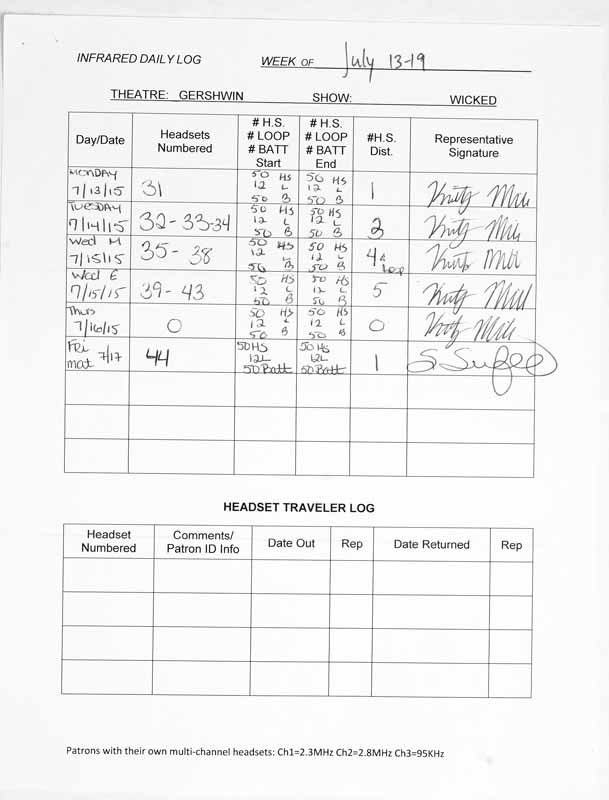 INFRARED DAILY LOG WEEK OF July 13-19
THEATRE: GERSHWIN SHOW: WICKED
Day/Date Headsets Numbered # H.S. # LOOP # BATT Start # H.S. # LOOP # BATT End #H.S. Dist. Representative Signature
MONDAY 7/13/15 31 50 HS 12 L 50 B 50 HS 12 L 50 B 1
TUESDAY 7/14/15 32-33-34 50 HS 12 L 50 B 50 HS 12 L 50 B 3
Wed M 7/15/15 35 - 38 50 HS 12 L 50 B 50 HS 12 L 50 B 4
Wed E 7/15/15 39-43 50 HS 12 L 50 B 50 HS 12 L 50 B 5
Thurs 7/16/15 0 50 HS 12 L 50 B 50 HS 12 L 50 B 0
Fri mat 7/17 44 50HS 12L 50Batt 50HS 12L 50Batt 1
HEADSET TRAVELER LOG
Headset Numbered Comments/ Patron ID Info Date Out Rep Date Returned Rep
Patrons with their own multi-channel headsets: Ch1=2.3MHz Ch2=2.8MHz Ch3=95KHz